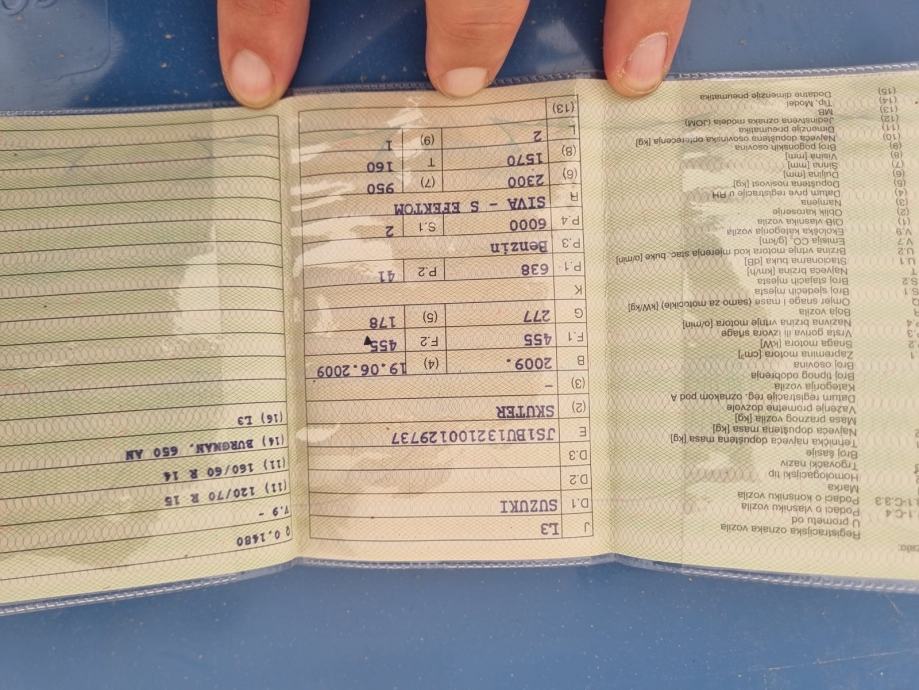 Registracijska oznaka vozila
U prometu od
Podaci o vlasniku vozila
Podaci o korisniku vozila
Marka
Homologacijski tip
Trgovački naziv
Broj šasije
Tehnička najveća dopuštena masa [kg]
Najveća dopuštena masa [kg]
Masa praznog vozila [kg]
Važenje prometne dozvole
Datum registracije reg. oznakom pod A
Kategorija vozila
Broj tipnog odobrenja
Broj osovina
Zapremina motora [cm³]
Snaga motora [kW]
Vrsta goriva ili izvora snage
Nazivna brzina vrtnje motora [o/min]
Boja vozila
Omjer snage i mase (samo za motocikle) [kW/kg]
S.1 Broj sjedećih mjesta
S.2 Broj stajaćih mjesta
T Najveća brzina [km/h]
U.1 Stacionarna buka [dB]
U.2 Brzina vrtnje motora kod mjerenja stac. buke [o/min]
V.7 Emisija CO₂ [g/km]
V.9 Ekološka kategorija vozila
(1) OIB vlasnika vozila
(2) Oblik karoserije
(3) Namjena
(4) Datum prve registracije u RH
(5) Dopuštena nosivost [kg]
(6) Duljina [mm]
(7) Širina [mm]
(8) Visina [mm]
(9) Broj pogonskih osovina
(10) Najveća dopuštena osovinska opterećenja [kg]
(11) Dimenzije pneumatika
(12) Jedinstvena oznaka modela (JOM)
(13) MB
(14) Tip, Model
(15) Dodatne dimenzije pneumatika
J L3
D.1 SUZUKI
D.2
D.3
E JS1BU132100129737
(2) SKUTER
(3) -
B 2009. (4) 19.06.2009
F.1 455 F.2 455
G 277 (5) 178
K
P.1 638 P.2 41
P.3 Benzin
P.4 6000 S.1 2
R SIVA - S EFEKTOM
(6) 2300 (7) 950
(8) 1570 T 160
L 2 (9) 1
(13)
Q 0.1480
V.9 -
(11) 120/70 R 15
(11) 160/60 R 14
(14) BURGMAN, 650 AN
(16) L3